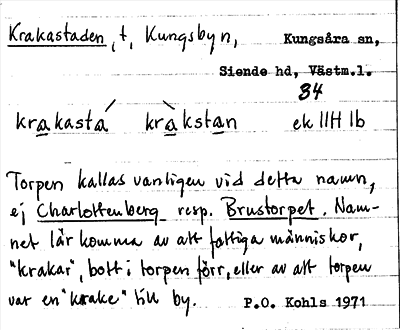 Krakastaden, t, Kungsbyn, Kungsåra sn,
Siende hd, Västm.l.
34
krakastá kràkstan ek IIH Ib
Torpen kallas vanligen vid detta namn,
ej Charlottenberg resp. Brustorpet. Nam-
net lär komma av att fattiga människor,
"krakar", bott i torpen förr, eller av att torpen
var en "krake" till by. P.O. Kohls 1971